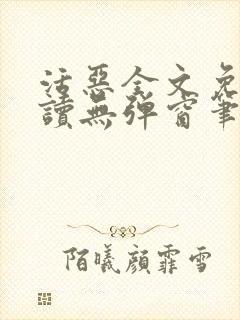 活惡全文免
讀無彈窗筆
陌曦顏霏雪